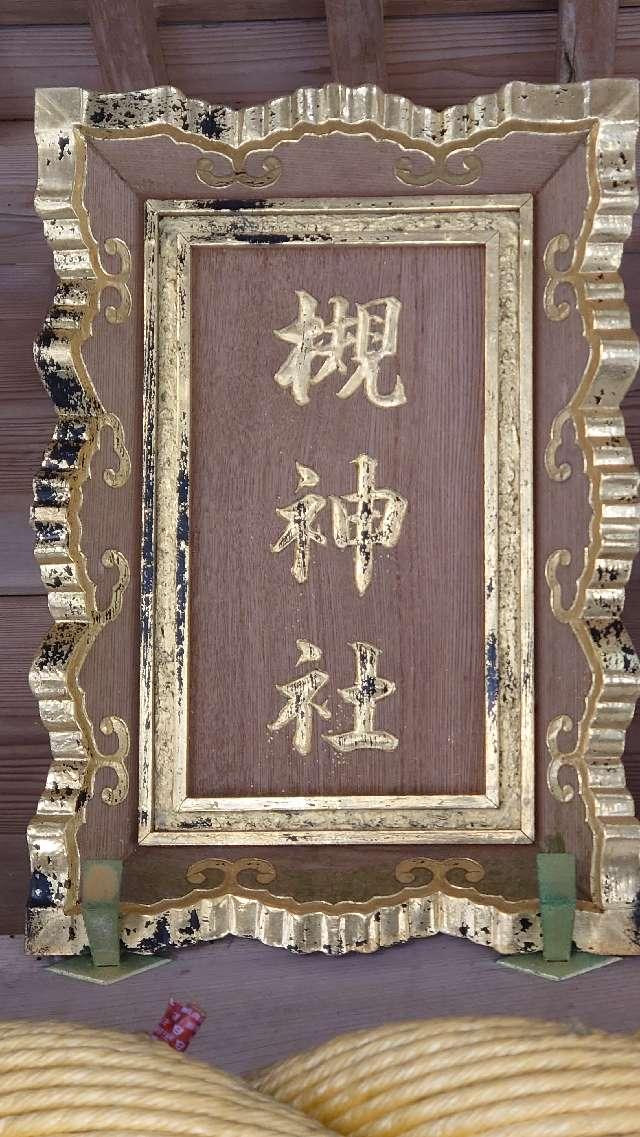 槻神社